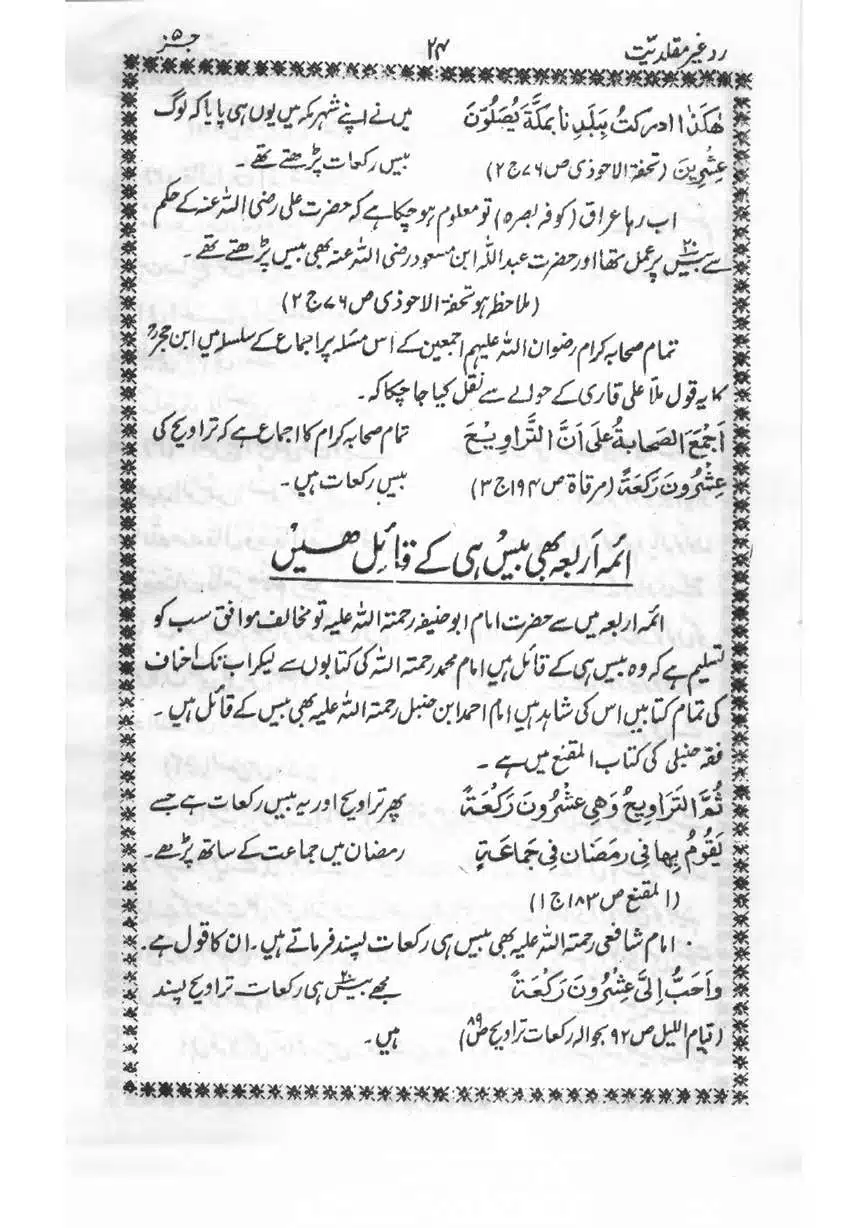 رد غیر مقلدیّت ۲۴ جز۵
ھٰکَذَا ادرکتُ بِبَلَدِنَا بمکَّةَ یُصَلُّوْنَ میں نے اپنے شہر مکہ میں یوں ہی پایا کہ لوگ
عِشْرِیْنَ (تحفۃ الاحوذی ص ۷۶ ج ۲) بیس رکعات پڑھتے تھے ۔
اب رہا عراق (کوفہ بصرہ) تو معلوم ہو چکا ہے کہ حضرت علی رضی اللہ عنہ کے حکم
سے بیس۲۰ پر عمل تھا اور حضرت عبداللہ ابن مسعود رضی اللہ عنہ بھی بیس پڑھتے تھے ۔
(ملاحظہ ہو تحفۃ الاحوذی ص ۷۶ ج ۲)
تمام صحابہ کرام رضوان اللہ علیہم اجمعین کے اس مسئلہ پر اجماع کے سلسلہ میں ابن حجرؒ
کا یہ قول ملا علی قاری کے حوالے سے نقل کیا جا چکا کہ ۔
اَجْمَعَ الصحابةُ عَلیٰ اَنَّ التَّرَاوِیْحَ تمام صحابہ کرام کا اجماع ہے کہ تراویح کی
عِشْرُوْنَ رَکعَةً (مرقاۃ ص ۱۹۴ ج ۳) بیس رکعات ہیں ۔
ائمہ اَربعہ بھی بیسؔ ہی کے قائِل ھیں
ائمہ اربعہ میں سے حضرت امام ابوحنیفہ رحمتہ اللہ علیہ تو مخالف موافق سب کو
تسلیم ہے کہ وہ بیس ہی کے قائل ہیں امام محمد رحمتہ اللہ کی کتابوں سے لیکر اب تک احناف
کی تمام کتابیں اس کی شاہد ہیں امام احمد ابن حنبل رحمتہ اللہ علیہ بھی بیس کے قائل ہیں ۔
فقہ حنبلی کی کتاب المقنع میں ہے ۔
ثُمَّ التَرَاوِیحُ وَھِی عشْرُونَ رَکْعَةً پھر تراویح اور یہ بیس رکعات ہے جسے
یَقُوْمُ بِھَا فِی رمَضَان فِی جَمَاعَةٍ رمضان میں جماعت کے ساتھ پڑھے ۔
(المقنع ص ۱۸۳ ج ۱)
امام شافعی رحمتہ اللہ علیہ بھی بیس ہی رکعات پسند فرماتے ہیں ۔ ان کا قول ہے ۔
واَحَبُّ اِلیَّ عِشْرُوْنَ رَکْعَةً مجھے بیس۲۰ ہی رکعات تراویح پسند
(قیام اللیل ص ۹۲ بحوالہ رکعات تراویح ص۸۹) ہیں ۔